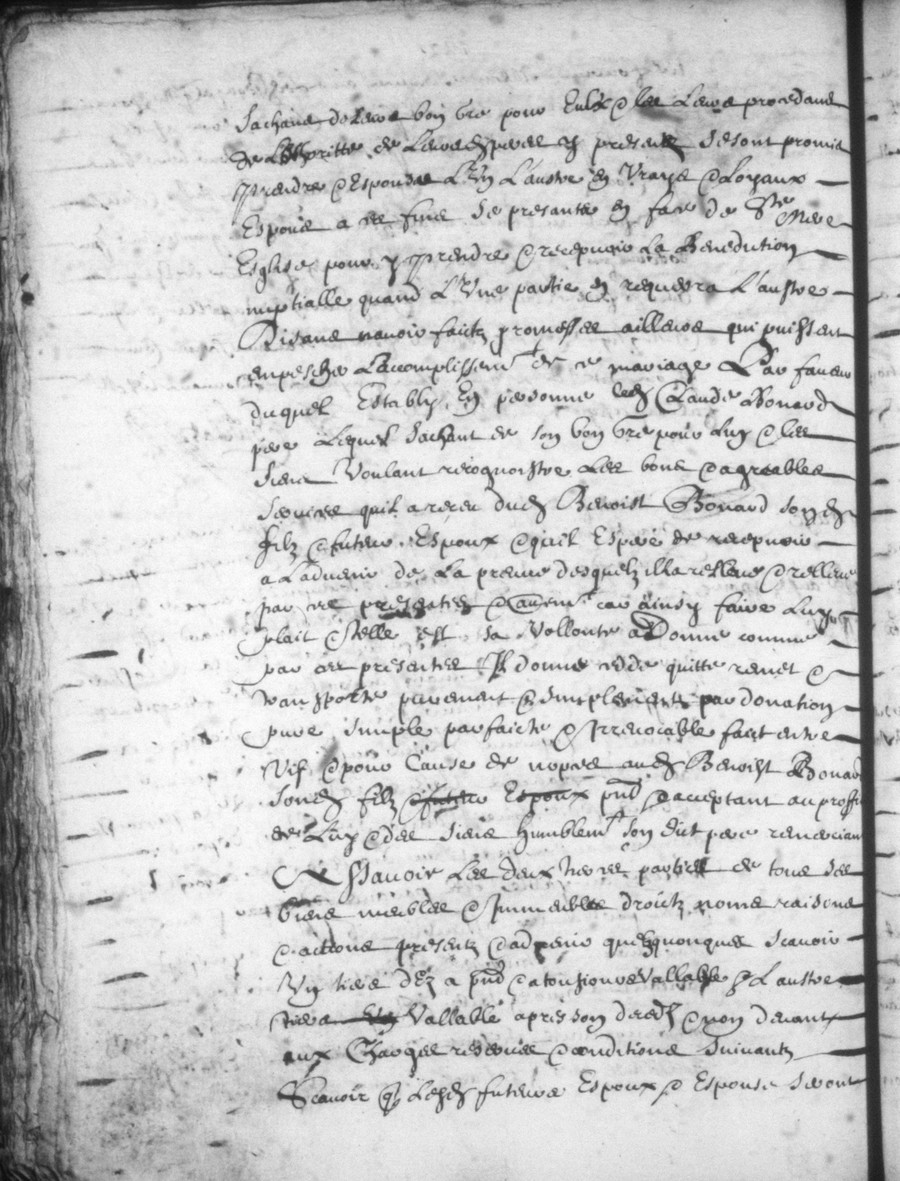 Sachans de leurs bon gre pour Eulx & les Leurs procedans
de Lauthoritte de Leursd peres Icy presents se sont promis
prendre & Espouser L'un L'austre En Vraye & Loyaux
Espoux a ces fins se presanter En face de Ste Mere
Esglise pour y prendre & recepvoir La Benediction
nuptialle quand L'Une partie En requerra L'austre
Disans navoir faictz promesses ailleurs qui puissent
Empescher Lacomplissemt de ce mariage En faveur
duquel Estably En personne led Claude Bonard
pere Lequel Sachant de son bon gre pour Luy & les
siens Voulant recognoistre Les bons & agreables
services quil a receu dud Benoist Bonard sond
filz & futeur Espoux & quil Espere de recepvoir
a Ladvenir de La preuve desquelz illa relleve & relleve
par ces presentes & car ainsy faire Luy
plait & telle est sa Vollonte a Donne comme
par ces presentes Il donne cedde quitte remet &
transporte purement & simplement par donation
pure simple parfaicte & Irrevocable faict entre
Vifz & pour Cause de nopces aud Benoist Bonard
sond filz & futeur Espoux pnt & acceptant au proffit
de Luy & des siens humblemt son dict pere remerciant
A Scavoir Les deux tierces parties de tous ses
biens meubles & Immeubles droictz noms raisons
& actions presentz & advenir quelzquonques Scavoir
Un tiers dez a pnt & a tousjours Vallable & Laustre
tiers Vallable apres son decedz & non devant
aux Charges reserves & conditions suivantz
Scavoir q Lesd futeurs Espoux & Espouse seront